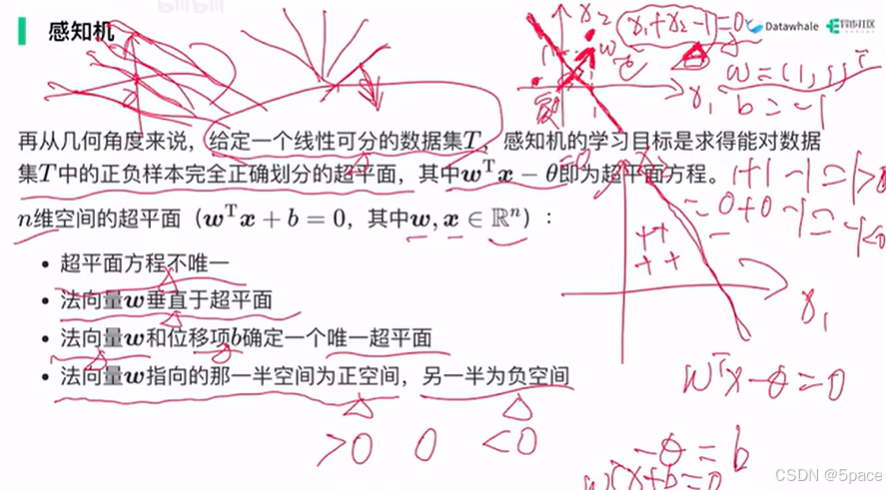 感知机
x₁+x₂-1=0
Datawhale
w=(1,1)ᵀ
b=-1
再从几何角度来说，给定一个线性可分的数据集T，感知机的学习目标是求得能对数据
集T中的正负样本完全正确划分的超平面，其中wᵀx − θ即为超平面方程。
=0
1+1-1=1>0
n维空间的超平面（wᵀx + b = 0，其中w, x ∈ ℝⁿ）：
0+0-1=-1<0
• 超平面方程不唯一
• 法向量w垂直于超平面
x₁
• 法向量w和位移项b确定一个唯一超平面
• 法向量w指向的那一半空间为正空间，另一半为负空间
wᵀx-θ=0
>0 0 <0
-θ=b
wᵀx+b=0
CSDN @5pace